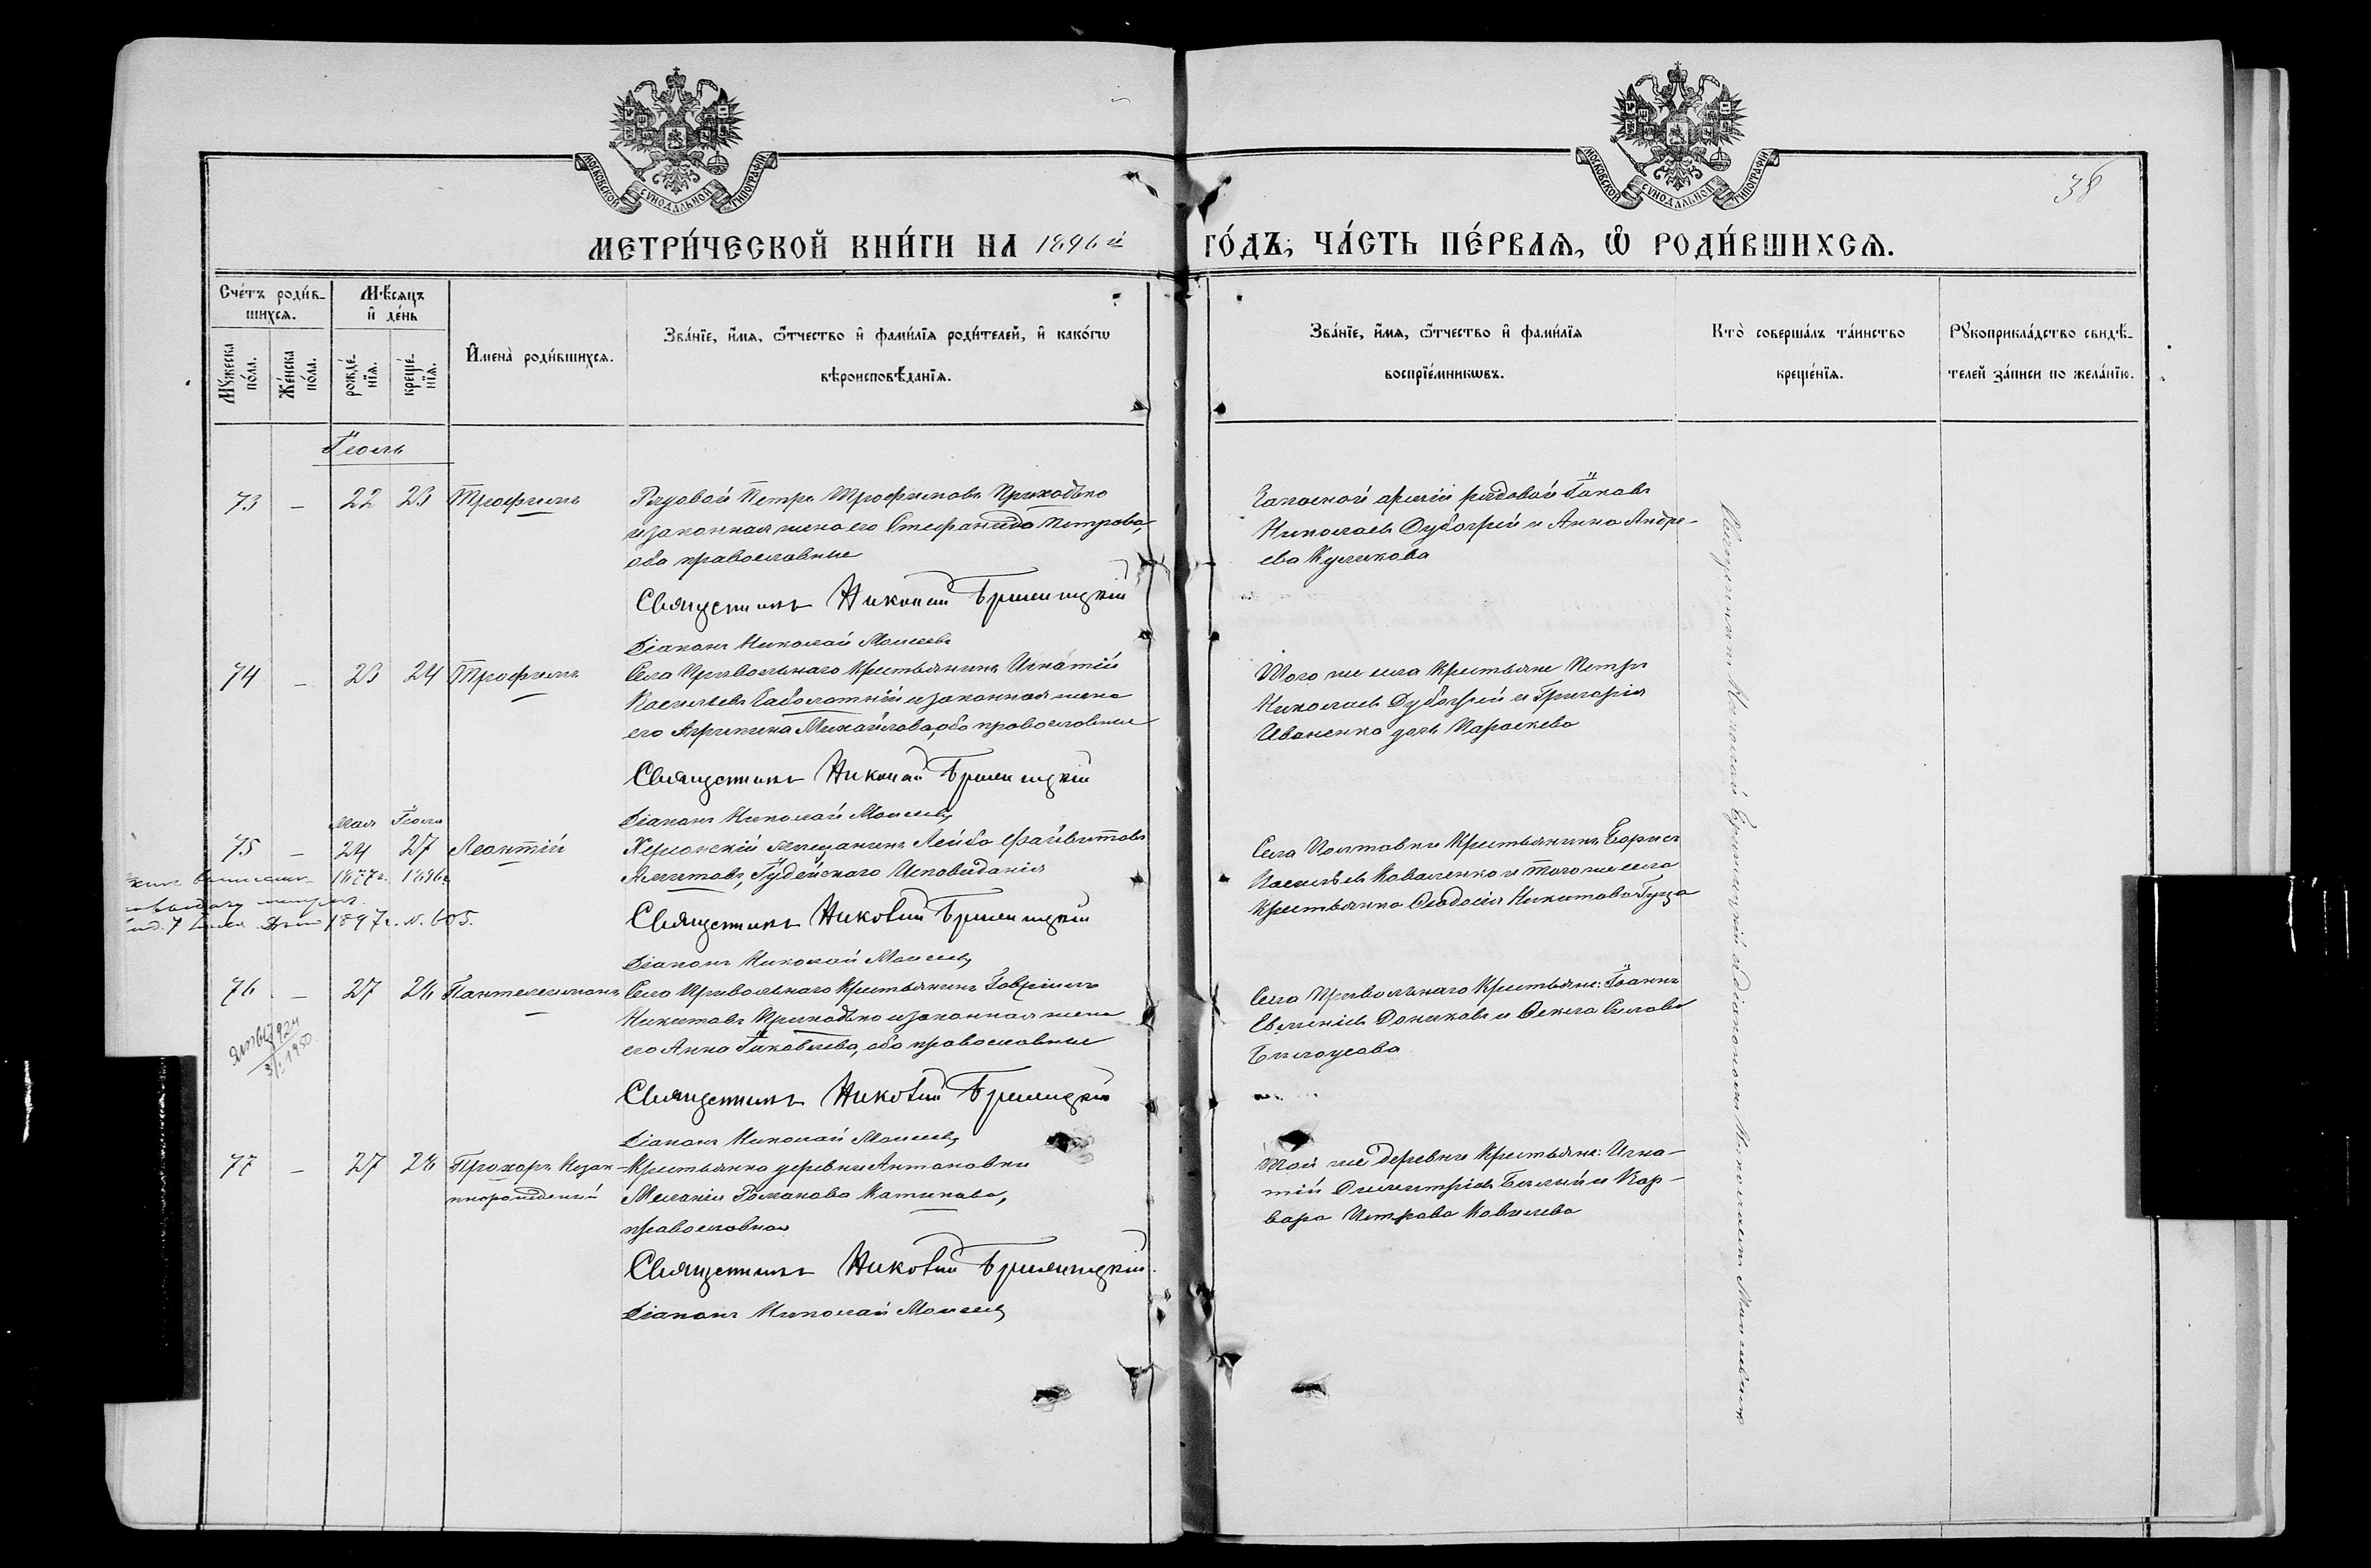 МОСКОВСКОЙ СѴНОДАЛЬНОЙ ТИПОГРАФІИ
МОСКОВСКОЙ СѴНОДАЛЬНОЙ ТИПОГРАФІИ
38
МЕТРИ́ЧЕСКОЙ КНИ́ГИ НА 1896й ГО́ДЪ, ЧА́СТЬ ПЕ́РВАѦ, Ѡ РОДИ́ВШИХСѦ.
Сче́тъ роди́в-
шихсѧ.
Мꙋ́жеска
по́ла.
Же́нска
по́ла.
Мѣ́сѧцъ
и де́нь
рожде́-
нїѧ.
креще́-
нїѧ.
Имена̀ роди́вшихсѧ.
Зва́нїе, и́мѧ, ѻ҆́тчество и҆ фами́лїѧ роди́телей, и҆ како́гѡ
вѣроисповѣ́данїѧ.
Зва́нїе, и́мѧ, ѻ҆́тчество и҆ фами́лїѧ
воспрїе́мникѡвъ.
Кто̀ соверша́лъ та́инство
креще́нїѧ.
Рꙋкоприкла́дство свидѣ́-
телей за́писи по жела́нїю.
Іюль
73 - 22 23 Трофимъ
Рядовой Петръ Трофимовъ Приходько
и законная жена его Стефанида Петрова,
оба православные
Священникъ Николай
Діаконъ Николай Моисеевъ
Запасной арміи рядовой Іаковъ
Николаевъ Дубогрій и Анна Андре-
ева Куликова
74 - 23 24 Трофимъ
Села Привольнаго крестьянинъ Игнатій
Васильевъ Заболотній и законная жена
его Агрипина Михайлова, оба православные
Священникъ Николай
Діаконъ Николай Моисеевъ
Того же села крестьяне Петръ
Николаевъ Дубогрій и Григорія
Иваненка дочь Параскева
Мая Іюля
75 - 24 27 Леонтій
1877г. 1896г.
1897г. N. 605.
Херсонскій мещанинъ Лейба
Іудейскаго Исповѣданія
Священникъ Николай
Діаконъ Николай Моисеевъ
Села Полтавки крестьянинъ Борисъ
Васильевъ Коваленко и того же села
крестьянка Феодосія Никитова Гуща
76 - 27 28 Пантелеимонъ
1950
Села Привольнаго крестьянинъ Гавріилъ
Никитовъ Приходько и законная жена
его Анна Іаковлева, оба православные
Священникъ Николай
Діаконъ Николай Моисеевъ
Села Привольнаго крестьяне: Іоаннъ
Евменіевъ Дониковъ и Фекла Силова
Билоусова
77 - 27 28 Прохоръ Незакон-
норожденный
Крестьянка деревни Антоновки
Меланія Романова Катикова,
православная
Священникъ Николай
Діаконъ Николай Моисеевъ
Той же деревни крестьяне: Игна-
тій Димитріевъ Билый и Вар-
вара Петрова Ковалева
Священникъ Николай съ діакономъ Николаемъ